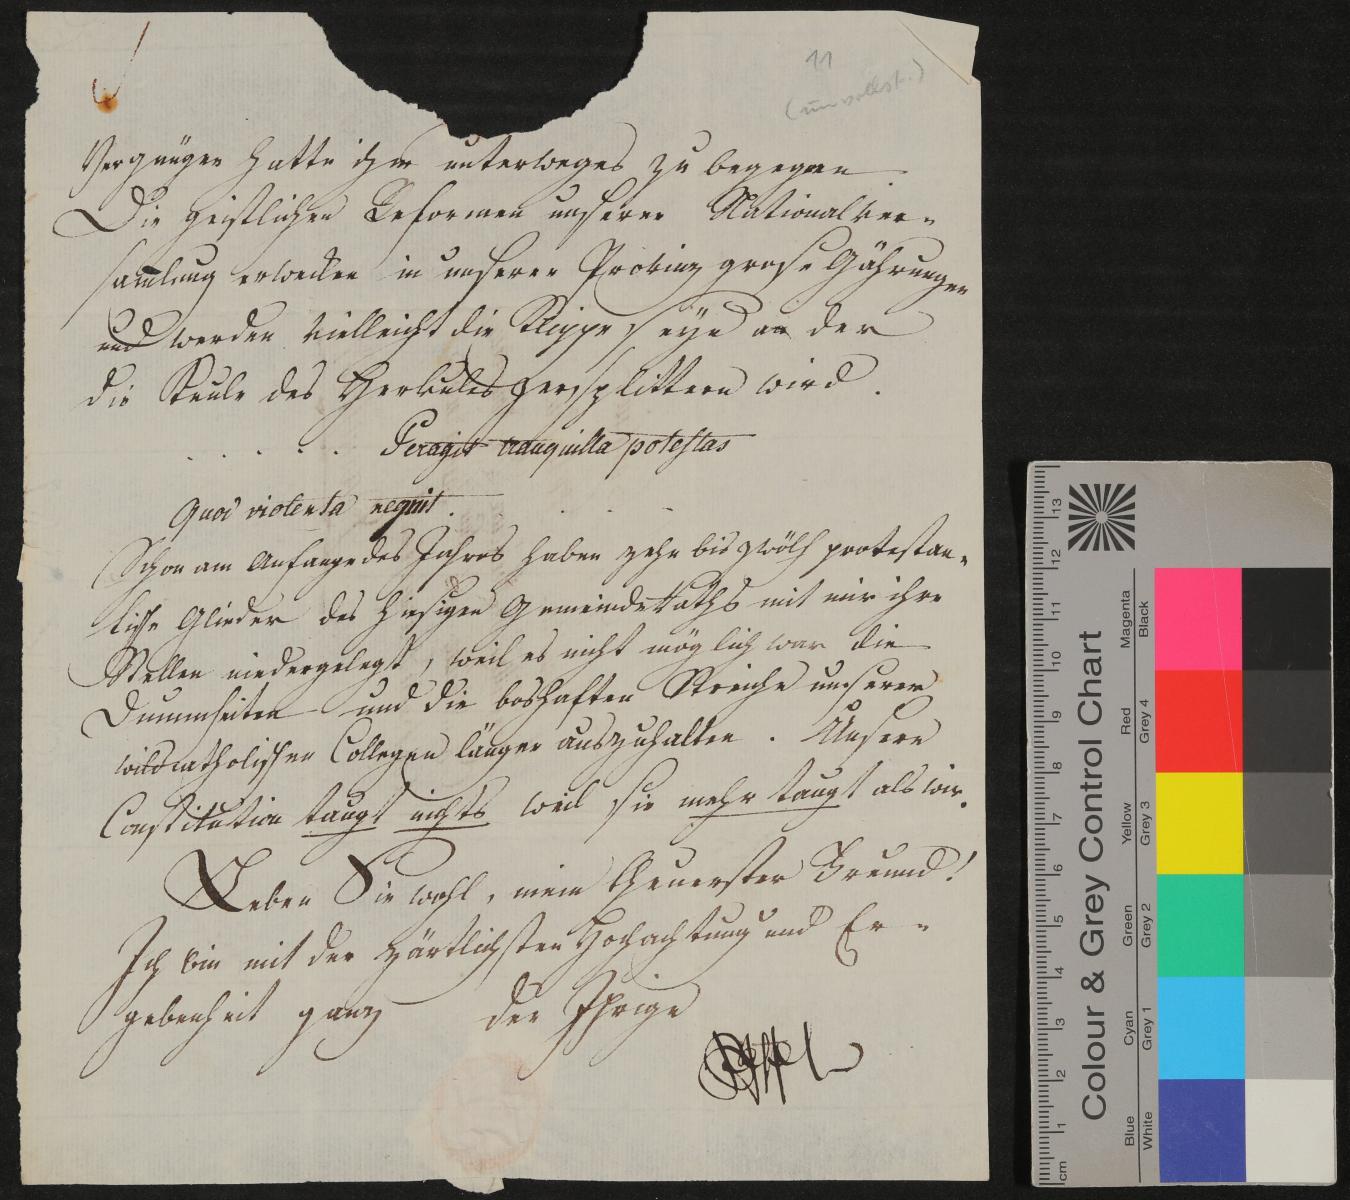 11
(unvollst.)
Vergnügen hatte ihm unterweges zu begegnen
Die geistlichen Reformen unserer Nationalver-
sam̄lung erwecken in unserer Provinz große Gährungen
und werden vielleicht die Klippe seyn an der
die Keule des Herkules zersplittern wird.
. . . . . Peragit tranquilla potestas
Quod violenta nequit. . . .
Schon am Anfange des Jahres haben zehn bis zwölf protestan-
tische Glieder des hiesigen Gemeinderaths mit mir ihre
Stellen niedergelegt, weil es nicht möglich war die
Dummheiten und die boshaften Streiche unserer
wildcatholischen Collegen länger auszuhalten. Unsere
Constitution taugt nichts weil sie mehr taugt als wir.
Leben Sie wohl, mein Theuerster Freund!
Ich bin mit der zärtlichsten Hochachtung und Er-
gebenheit ganz der Ihrige
Pfeffel
Colour & Grey Control Chart
Blue Cyan Green Yellow Red Magenta
White Grey 1 Grey 2 Grey 3 Grey 4 Black
cm 1 2 3 4 5 6 7 8 9 10 11 12 13